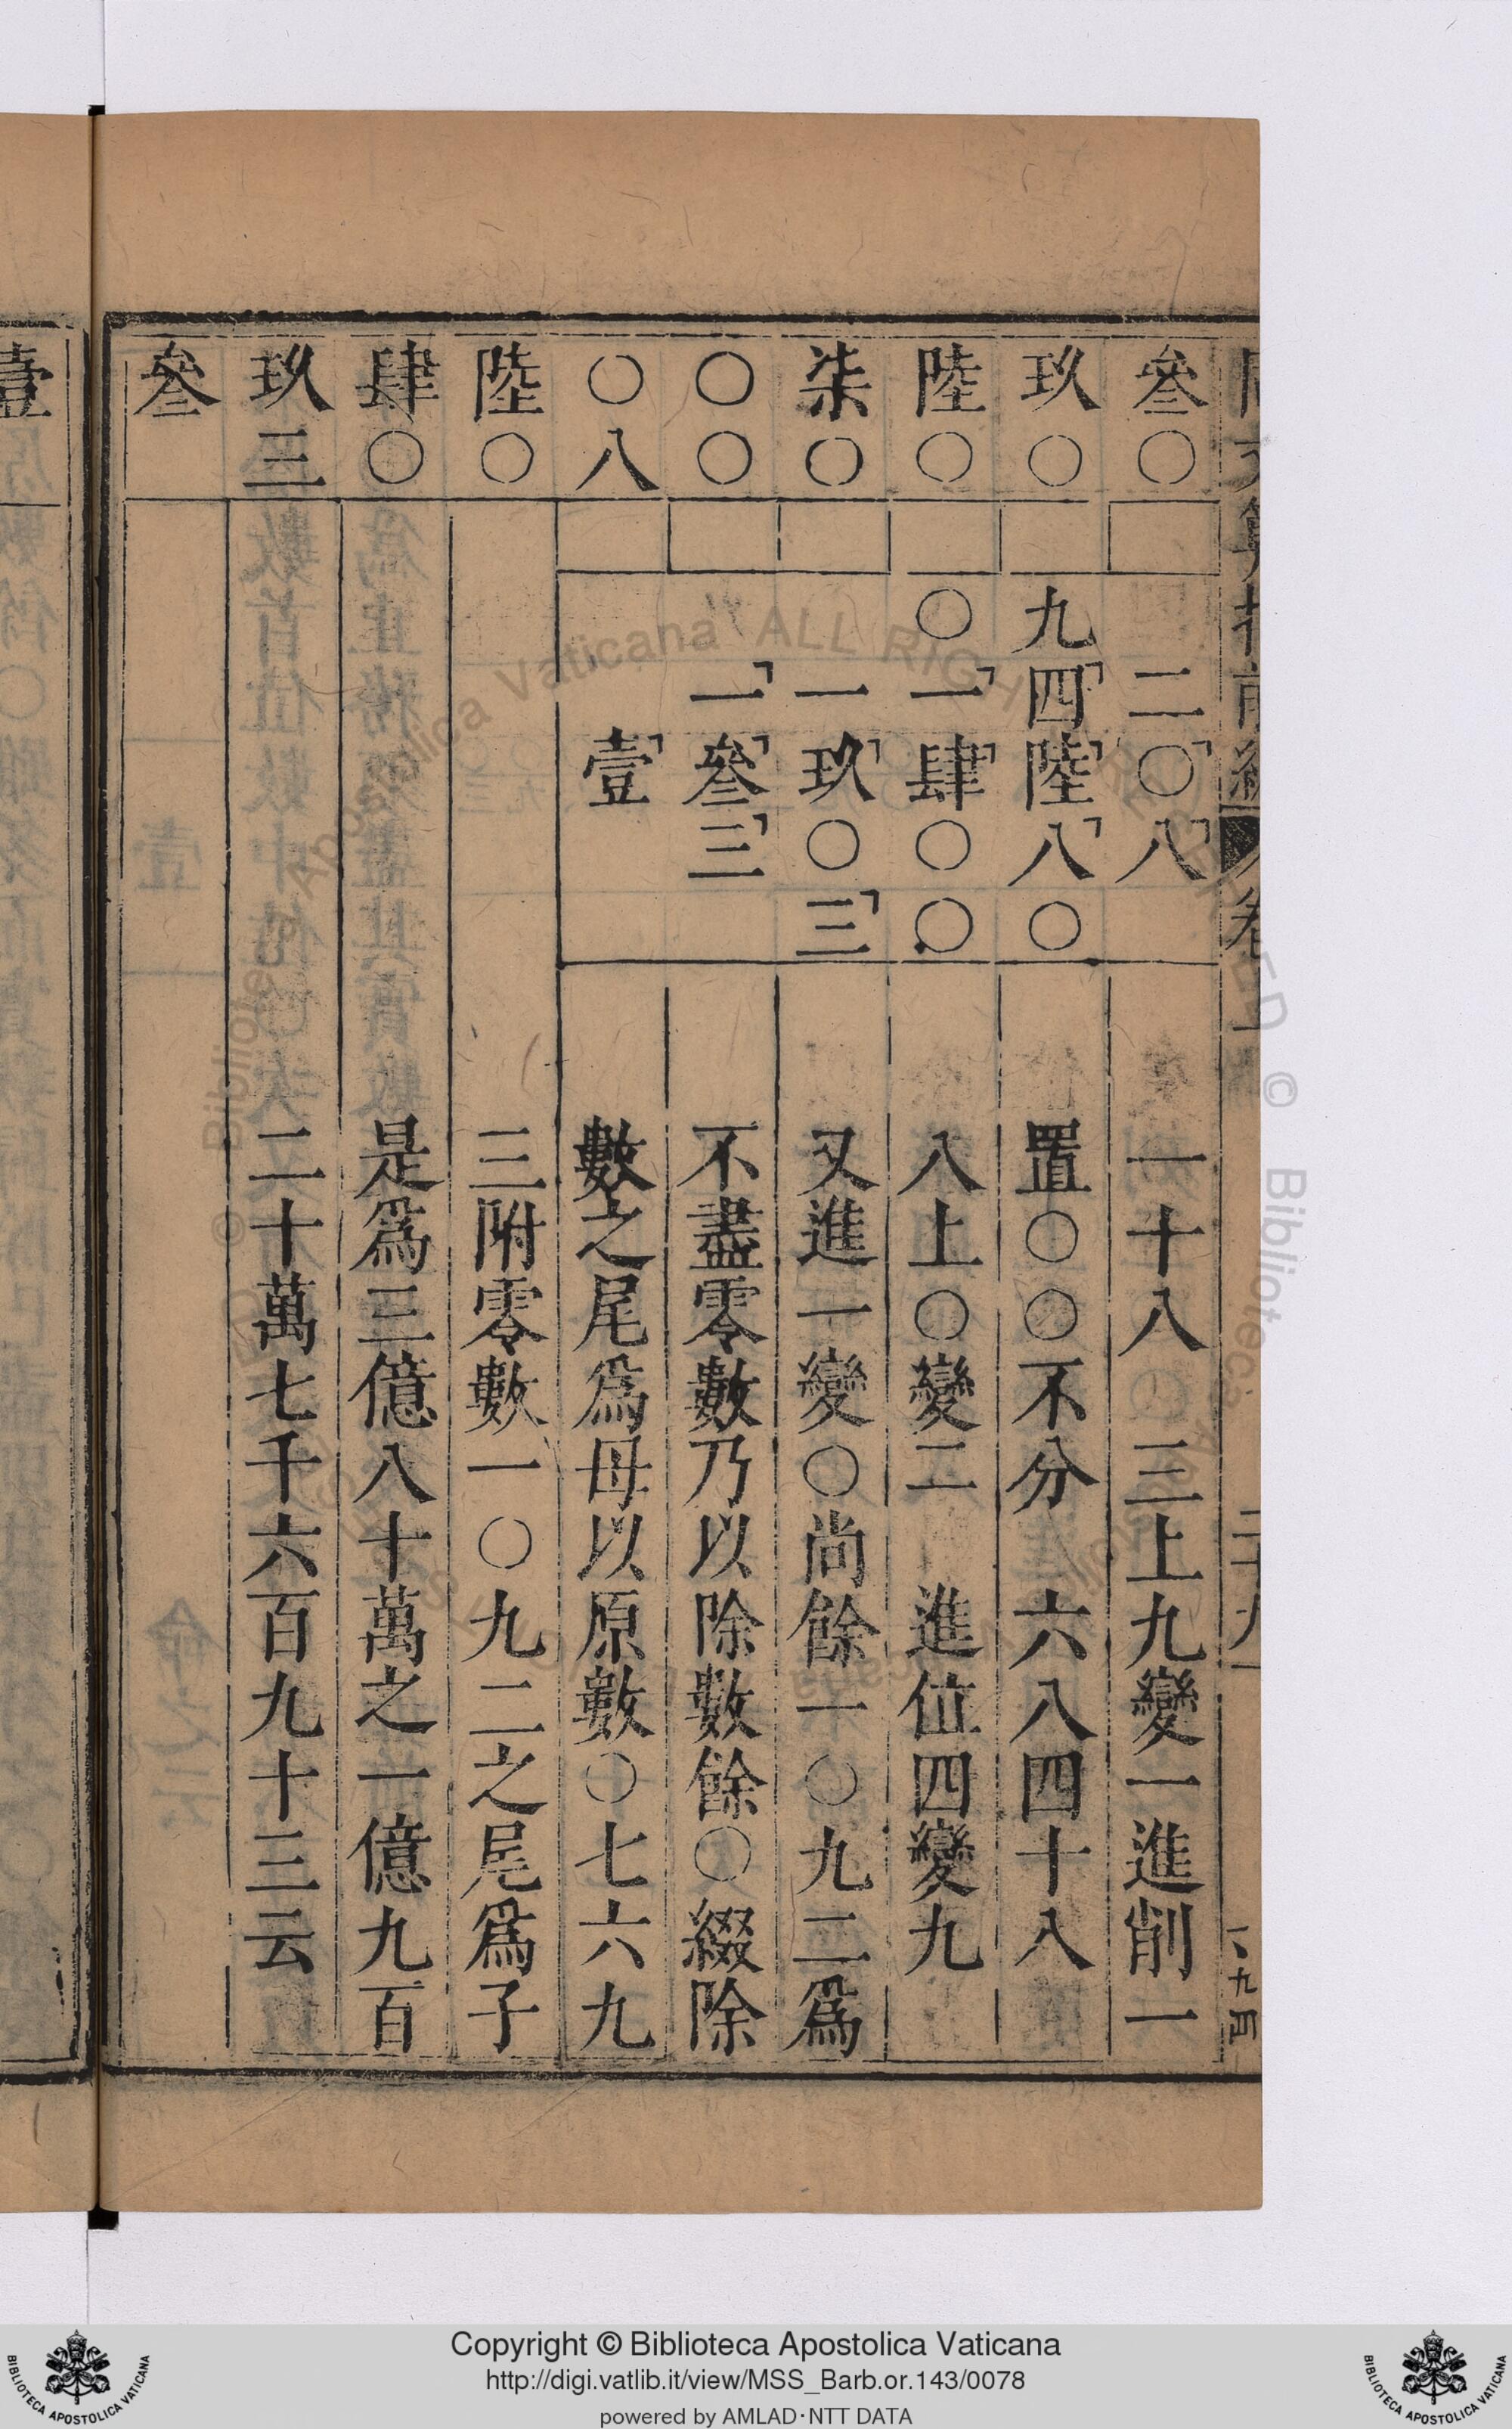 叄○二○八一十八三上九變一進削一
玖○九四陸八○置○○不分六八四十八
陸○○一肆○○八上○變二進位四變九
柒○一玖○三又進一變○尚餘一○九二爲
○○一叄三不盡零數乃以除數餘○綴除
○八壹數之尾爲母以原數○七六九
陸○三附零數一○九二之尾爲子
肆○是爲三億八十萬之一億九百
玖三二十萬七千六百九十三云
叄
壹
Copyright © Biblioteca Apostolica Vaticana
http://digi.vatlib.it/view/MSS_Barb.or.143/0078
powered by AMLAD·NTT DATA
BIBLIOTECA APOSTOLICA VATICANA
BIBLIOTECA APOSTOLICA VATICANA